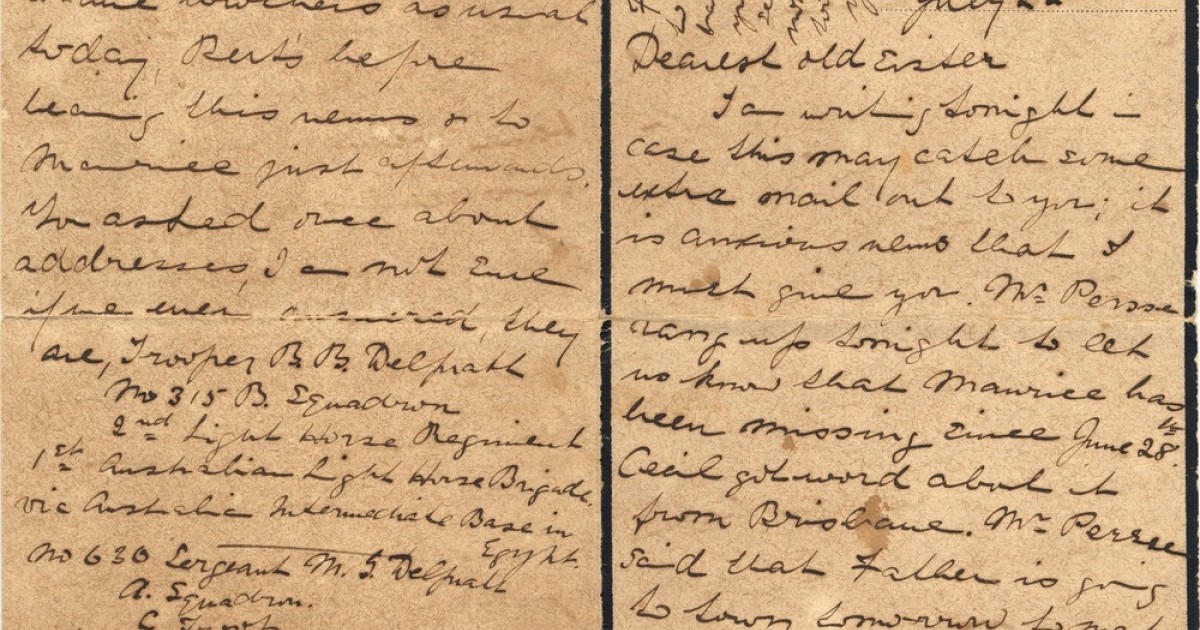 July 22
Dearest old Sister
I am writing tonight in
case this may catch some
extra mail out to you; it
is anxious news that I
must give you. Mr Persse
rang up tonight to let
us know that Maurice has
been missing since June 28th.
Cecil got word about it
from Brisbane. Mr Persse
said that Father is going
to town tomorrow to
as usual
today, Bert's before
hearing this news & to
Maurice just afterwards.
You asked once about
addresses, I am not sure
if we ever answered, they
are, Trooper B. B. Delpratt
No 315 B. Squadron
2nd Light Horse Regiment
1st Australian Light Horse Brigade.
via Australian Intermediate Base in
Egypt.
No 630 Sergeant M. G. Delpratt
A. Squadron.
C Troop